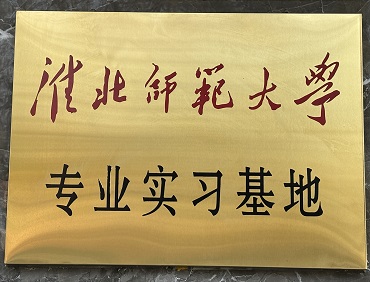 淮北师範大學
专业实习基地